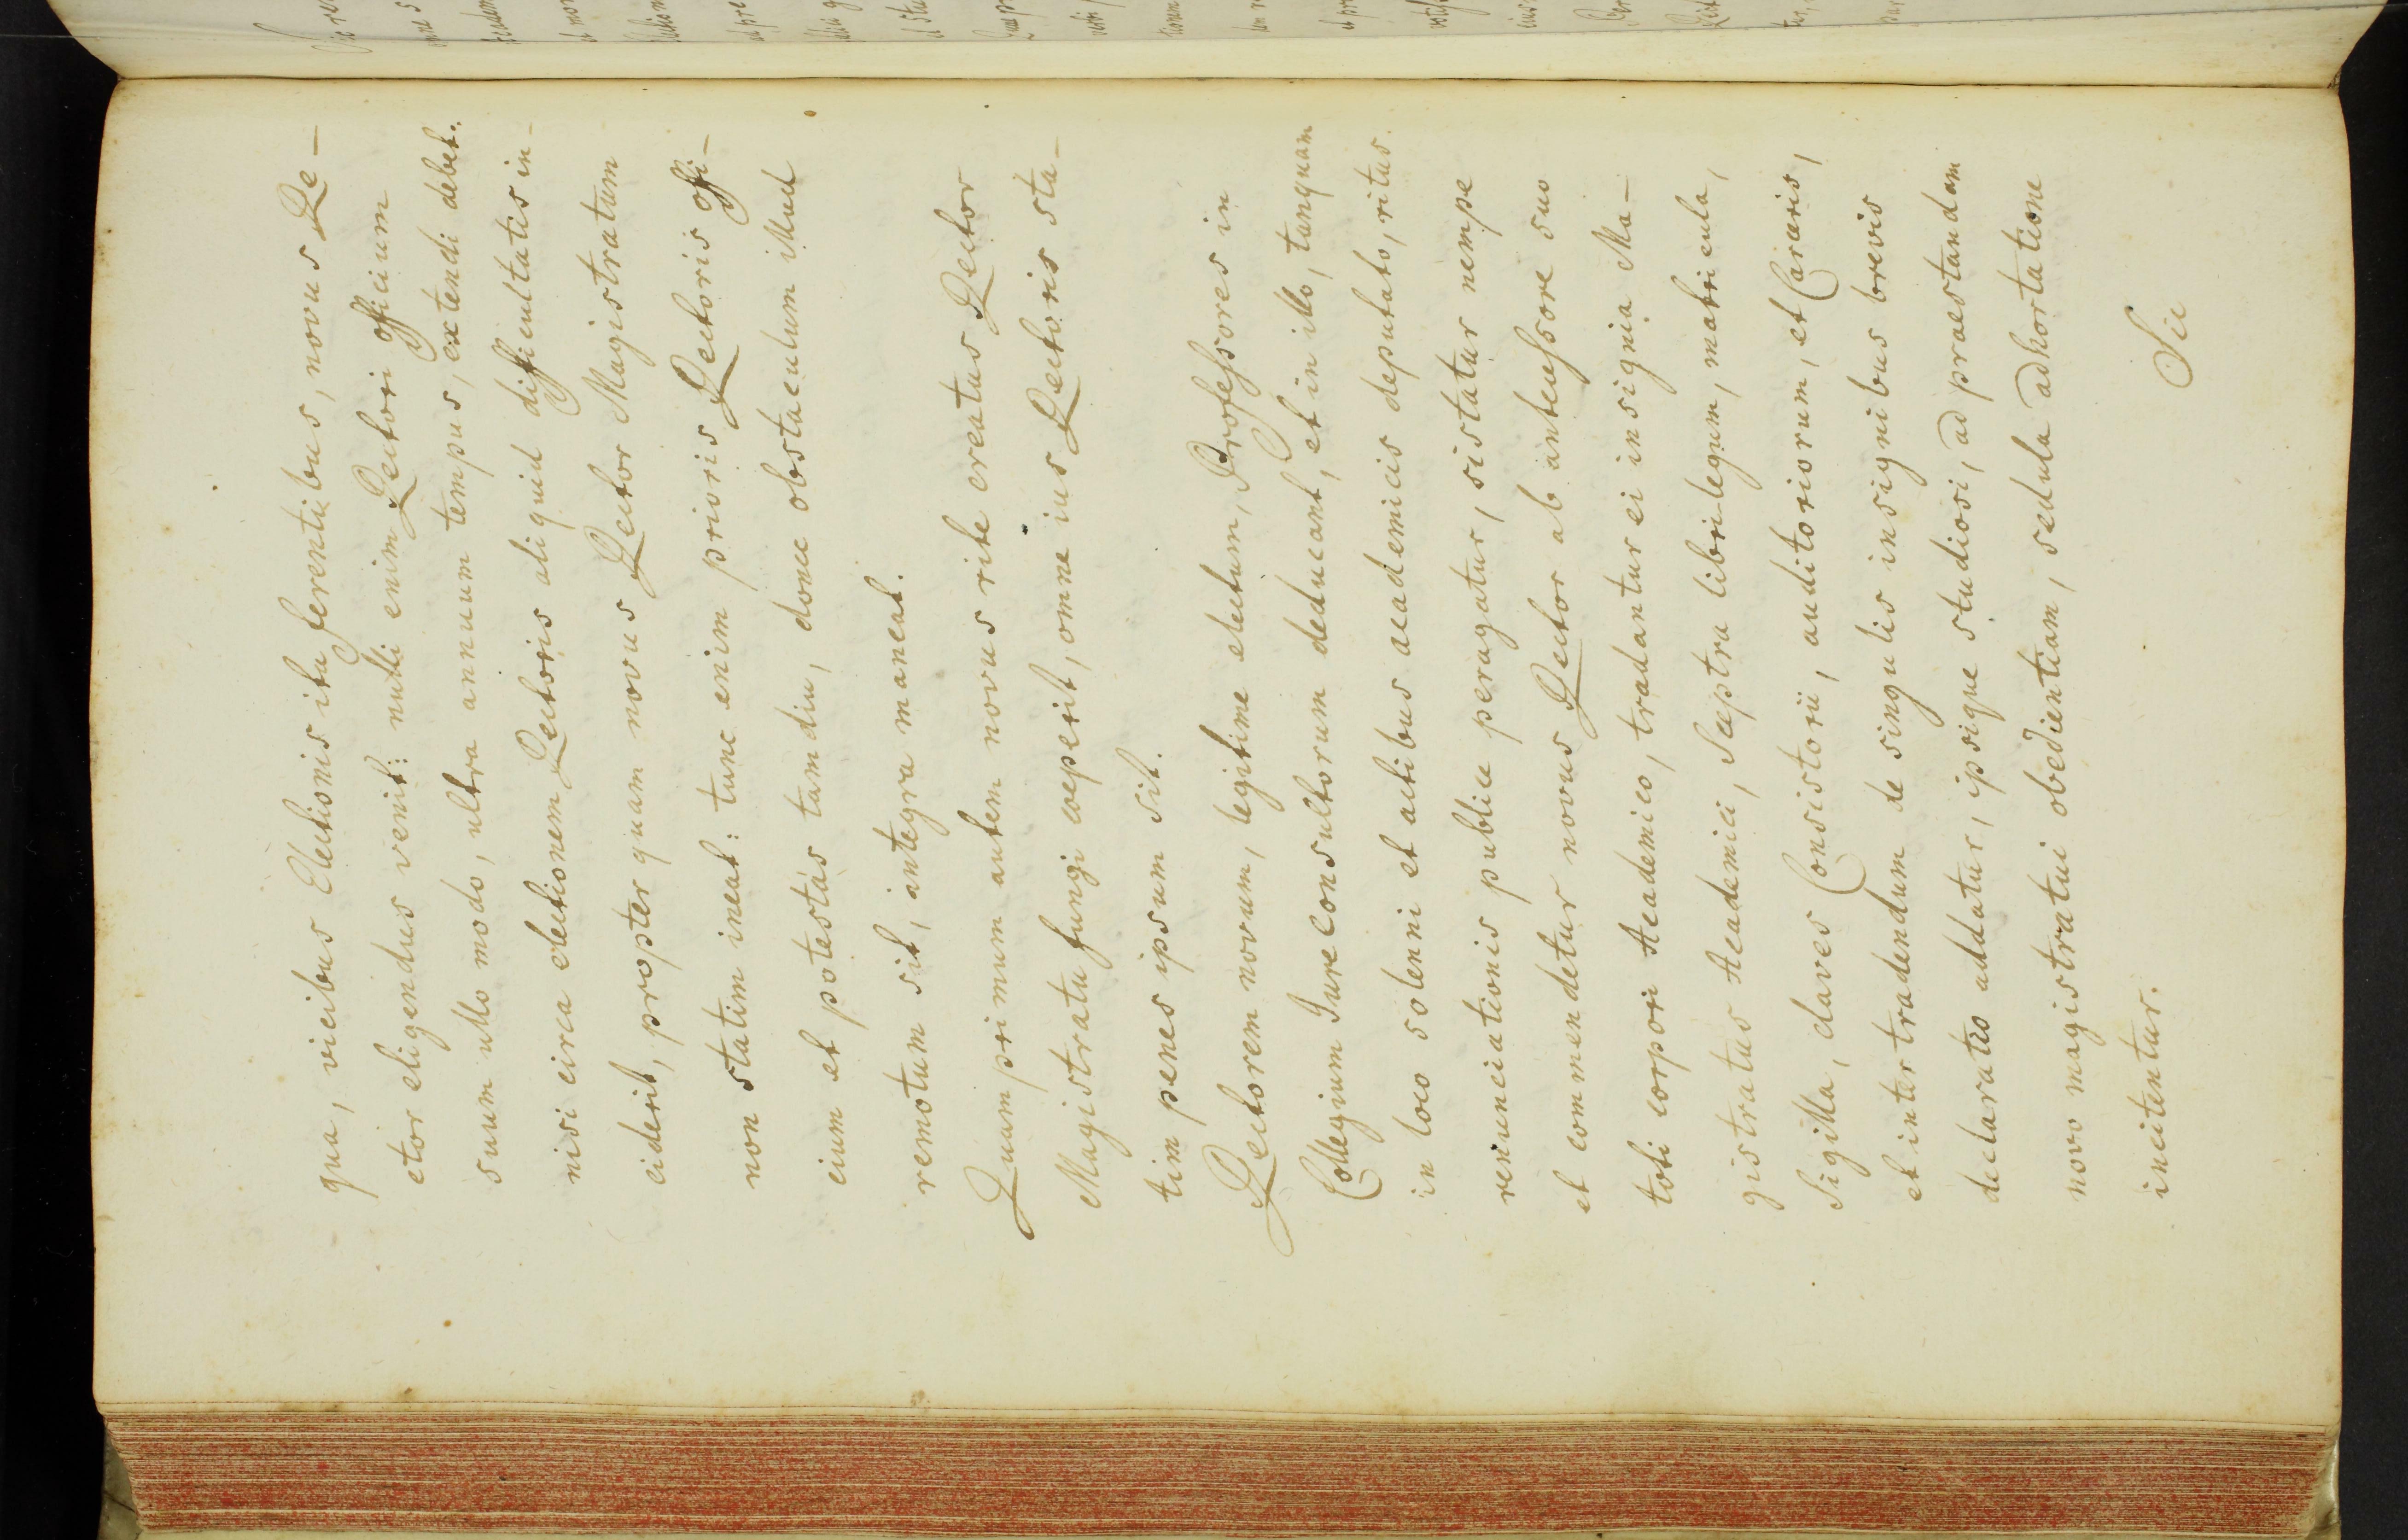 qua, vicibus Electionis ita ferentibus, novus Re-
ctor eligendus venit: nulli enim Rectori officium
suum ullo modo, ultra annuum tempus, extendi debet.
nisi circa electionem Rectoris aliquid difficultatis in-
ciderit, propter quam novus Rector Magistratum
non statim ineat: tunc enim prioris Rectoris offi-
cium et potestas tamdiu, donec obstaculum illud
remotum sit, integra maneat.
Quamprimum autem novus rite creatus Rector
Magistratu fungi coeperit, omne ius Rectoris sta-
tim penes ipsum sit.
Rectorem novum, legitime electum, Professores in
Collegium Jureconsultorum deducant, et in illo, tanquam
in loco solenni et actibus academicis deputato, ritus
renunciationis publice peragatur, sistatur nempe
et commendetur novus Rector ab antecessore suo
toti corpori Academico, tradantur ei insignia Ma-
gistratus Academici, Sceptra libri legum, matricula,
Sigilla, claves Consistorii, auditoriorum, et Carceris,
et inter tradendum de singulis insignibus brevis
declaratio addatur, ipsique studiosi, ad praestandam
novo magistratui obedientiam, sedula adhortatione
incitentur.
Sic